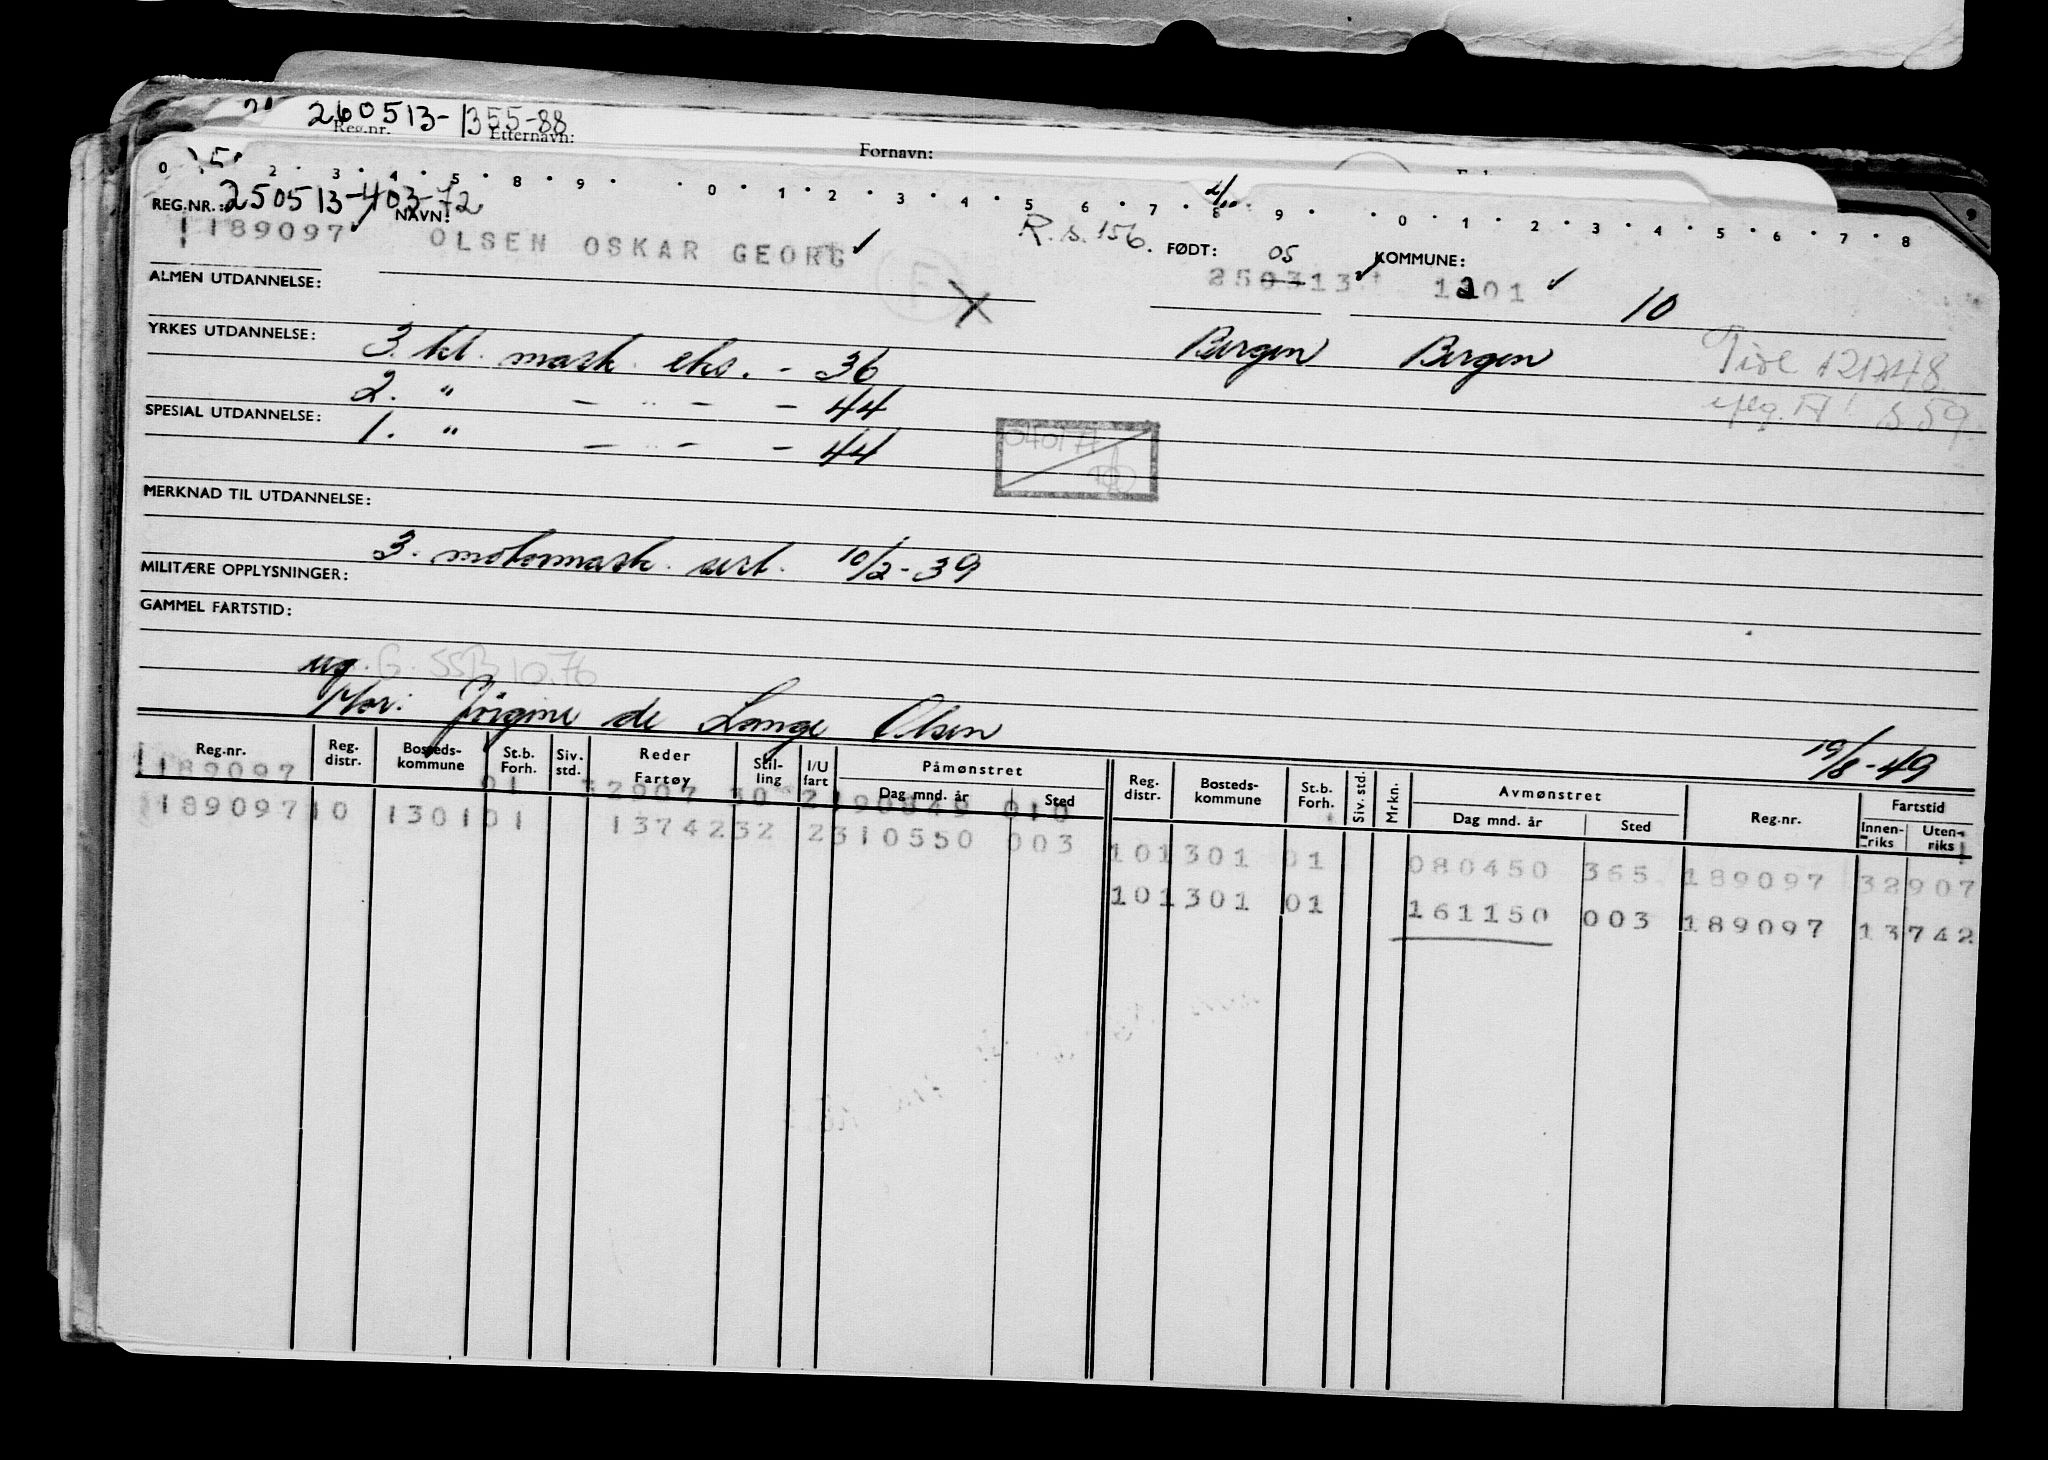 260513-1355-88
Reg.nr. Etternavn: Fornavn:
0 2 3 4 5 8 9 0 1 2 3 4 5 6 7 8 9 0 1 2 3 4 5 6 7 8
REG.NR.: 250513-403-72 NAVN: R.s. 156. FØDT: 05 KOMMUNE:
189097 OLSEN OSKAR GEORG 250313 1301 10
ALMEN UTDANNELSE:
YRKES UTDANNELSE: 3. kl. mask. eks. - 36 Bergen Bergen
2. " - " - - 44
SPESIAL UTDANNELSE: 1. " - " - - 44
MERKNAD TIL UTDANNELSE:
3. motormask. sert. 10/2-39
MILITÆRE OPPLYSNINGER:
GAMMEL FARTSTID:
ug. G. SSB 10.76
Mor: Jørgine de Lange Olsen 19/8-49
Reg.nr. Reg. distr. Bosteds- kommune St.b. Forh. Siv. std. Reder Fartøy Stil- ling I/U fart Påmønstret Dag mnd. år Sted Reg. distr. Bosteds- kommune St.b. Forh. Siv. std. Mrkn. Avmønstret Dag mnd. år Sted Reg.nr. Fartstid Innen- riks Uten- riks
189097 01 32907 30 2 190849 010
189097 10 1301 01 13742 32 2 310550 003
10 1301 01 080450 365 189097 32907
10 1301 01 161150 003 189097 13742